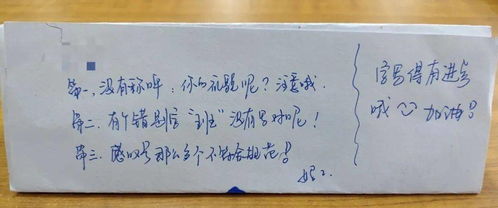 第一,没有称呼,你的礼貌呢?注意哦.
第二.有个错别字"班"没有写对呢!
第三.感叹号那么多个不符合规范!
妈:
字写得有进步
哦 加油!